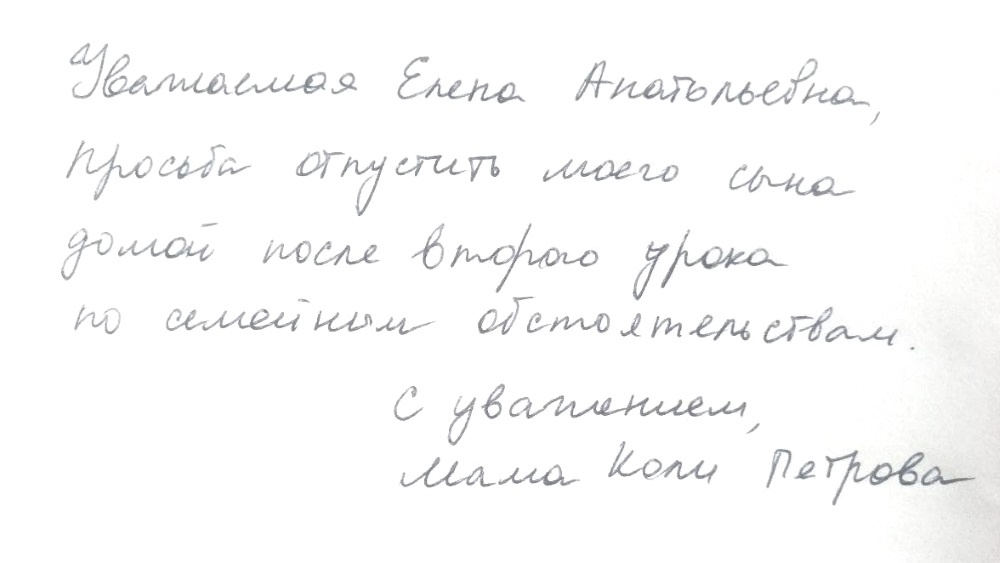 Уважаемая Елена Анатольевна,
просьба отпустить моего сына
домой после второго урока
по семейным обстоятельствам.
С уважением,
мама Коли Петрова